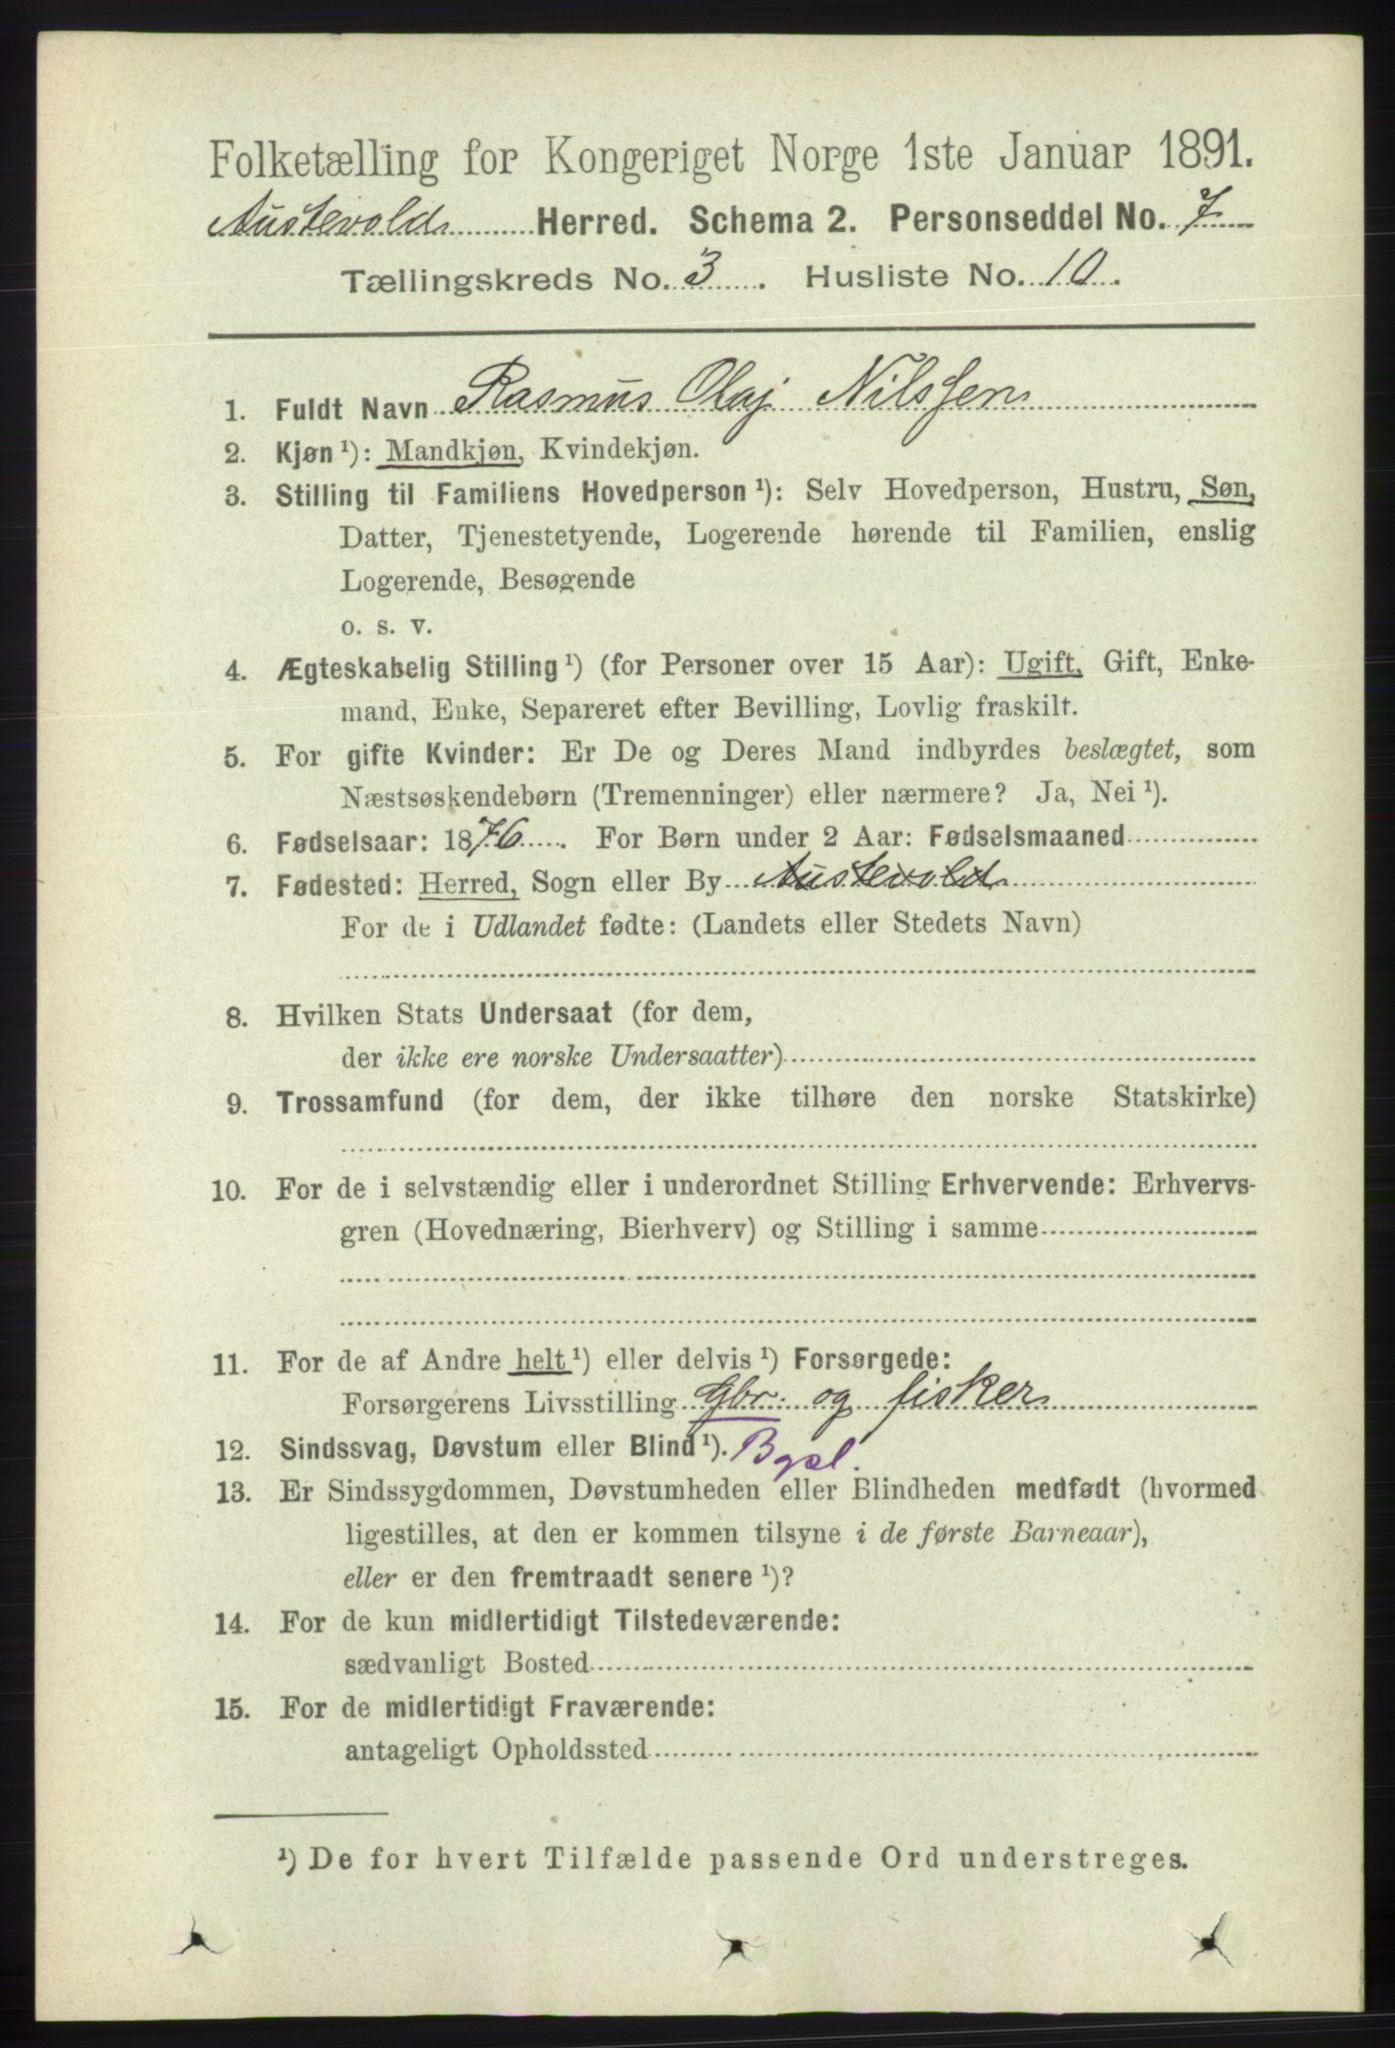 Folketælling for Kongeriget Norge 1ste Januar 1891.
Austevold Herred. Schema 2. Personseddel No. 7
Tællingskreds No. 3. Husliste No. 10.
1. Fuldt Navn Rasmus Olaj Nilssen
2. Kjøn ¹): Mandkjøn, Kvindekjøn.
3. Stilling til Familiens Hovedperson ¹): Selv Hovedperson, Hustru, Søn,
Datter, Tjenestetyende, Logerende hørende til Familien, enslig
Logerende, Besøgende
o. s. v.
4. Ægteskabelig Stilling ¹) (for Personer over 15 Aar): Ugift, Gift, Enke-
mand, Enke, Separeret efter Bevilling, Lovlig fraskilt.
5. For gifte Kvinder: Er De og Deres Mand indbyrdes beslægtet, som
Næstsøskendebørn (Tremenninger) eller nærmere? Ja, Nei ¹).
6. Fødselsaar: 1876. For Børn under 2 Aar: Fødselsmaaned
7. Fødested: Herred, Sogn eller By Austevold
For de i Udlandet fødte: (Landets eller Stedets Navn)
8. Hvilken Stats Undersaat (for dem,
der ikke ere norske Undersaatter)
9. Trossamfund (for dem, der ikke tilhøre den norske Statskirke)
10. For de i selvstændig eller i underordnet Stilling Erhvervende: Erhvervs-
gren (Hovednæring, Bierhverv) og Stilling i samme
11. For de af Andre helt ¹) eller delvis ¹) Forsørgede:
Forsørgerens Livsstilling Gbr. og fisker
12. Sindssvag, Døvstum eller Blind ¹).
13. Er Sindssygdommen, Døvstumheden eller Blindheden medfødt (hvormed
ligestilles, at den er kommen tilsyne i de første Barneaar),
eller er den fremtraadt senere ¹)?
14. For de kun midlertidigt Tilstedeværende:
sædvanligt Bosted
15. For de midlertidigt Fraværende:
antageligt Opholdssted
¹) De for hvert Tilfælde passende Ord understreges.